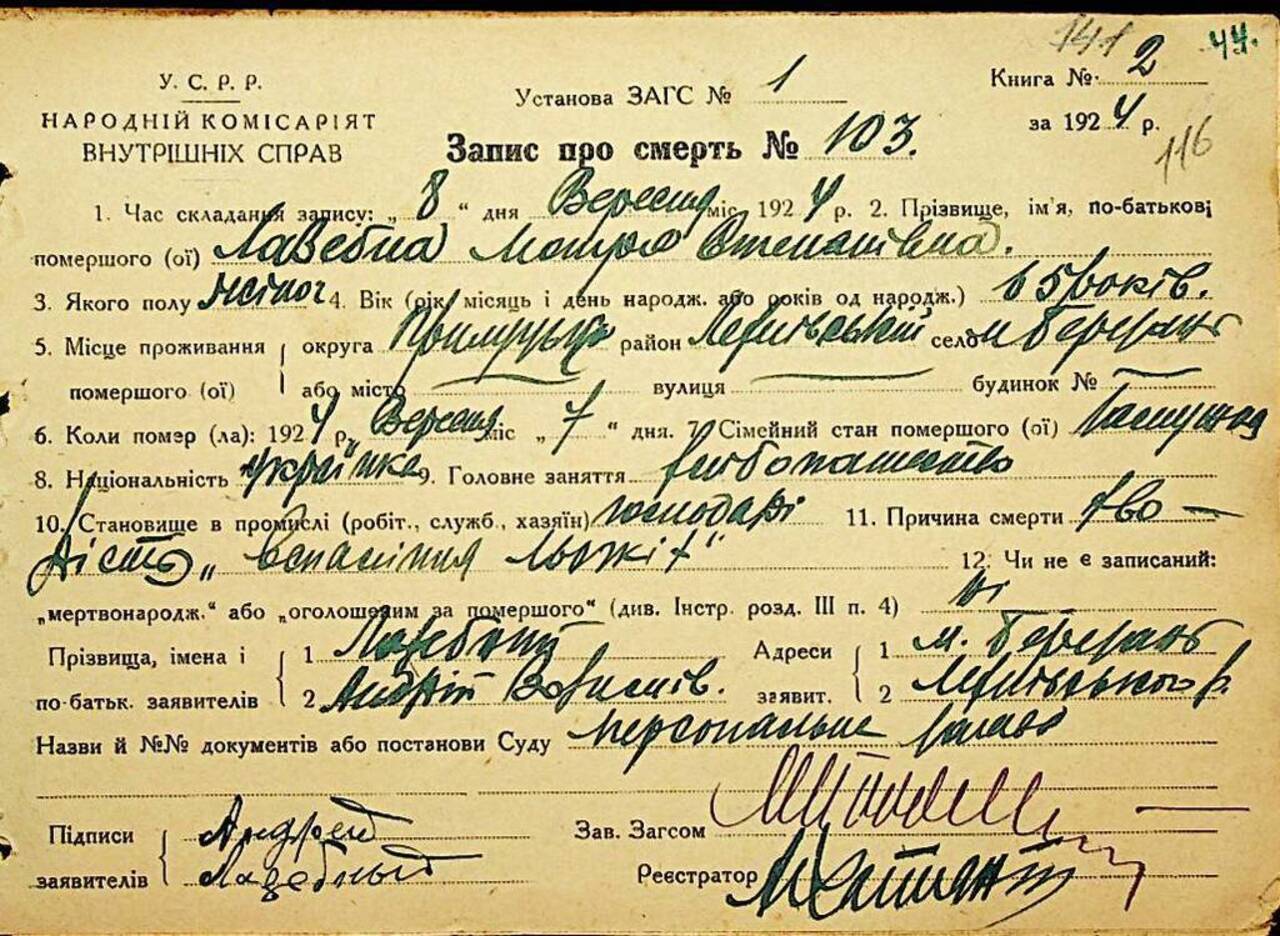 141 2 44.
У. С. Р. Р. Установа ЗАГС № 1 Книга № 2
НАРОДНІЙ КОМІСАРІЯТ за 1924 р.
ВНУТРІШНІХ СПРАВ Запис про смерть № 103. 116
1. Час складання запису: „ 8 “ дня Вересня міс 1924 р. 2. Прізвище, ім'я, по-батькові
помершого (ої) Лазебна Мотря Степанівна.
3. Якого полу жіноч 4. Вік (рік, місяць і день народж. або років од народж.) 65 років.
5. Місце проживання округа Прилуцька район село м Березань
помершого (ої) або місто — вулиця — будинок № —
6. Коли помэр (ла): 1924 р. Вересня міс „ 7 “ дня. 7. Сімейний стан помершого (ої)
8. Національність українка 9. Головне заняття хлібопашество
10. Становище в промислі (робіт., служб., хазяін) господарі 11. Причина смерти
12. Чи не є записаний:
„мертвонародж.“ або „оголошеним за помершого“ (див. Інстр. розд. III п. 4) ні
Прізвища, імена і 1 Лазебний Адреси 1 м. Березань
по-батьк. заявителів 2 Андрій заявит. 2
Назви й №№ документів або постанови Суду персональне
Підписи Андрей Зав. Загсом
заявителів Лазебный Реєстратор